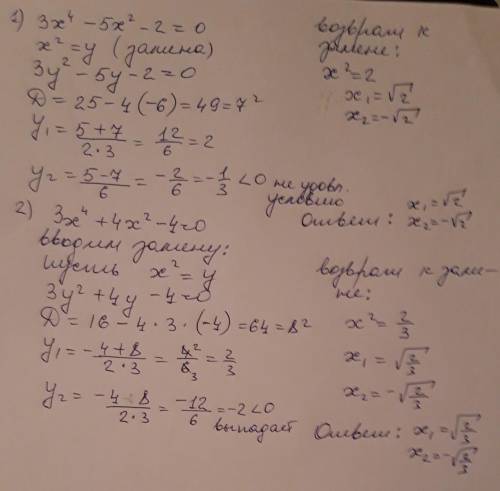 1) 3x⁴ - 5x² - 2 = 0
x² = y (замена)
3y² - 5y - 2 = 0
D = 25 - 4(-6) = 49 = 7²
y₁ = (5+7)/(2·3) = 12/6 = 2
y₂ = (5-7)/6 = -2/6 = -1/3 < 0 не удовл. условию
возврат к
замене:
x² = 2
x₁ = √2
x₂ = -√2
Ответ: x₁ = √2
x₂ = -√2
2) 3x⁴ + 4x² - 4 = 0
вводим замену:
пусть x² = y
3y² + 4y - 4 = 0
D = 16 - 4·3·(-4) = 64 = 8²
y₁ = (-4+8)/(2·3) = 4²/6₃ = 2/3
y₂ = (-4-8)/(2·3) = -12/6 = -2 < 0
выпадает
возврат к заме-
не:
x² = 2/3
x₁ = √(2/3)
x₂ = -√(2/3)
Ответ: x₁ = √(2/3)
x₂ = -√(2/3)